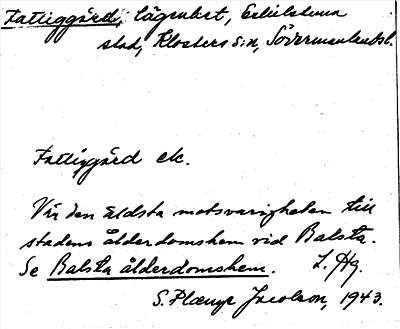 Fattiggård, lägenhet, Eskilstuna
stad, Klosters s:n, Södermanlandsl.
Fattiggård etc.
Var den äldsta motsvarigheten till
stadens ålderdomshem vid Balsta.
Se Balsta ålderdomshem. I. Hg.
S. Jacobson, 1943.